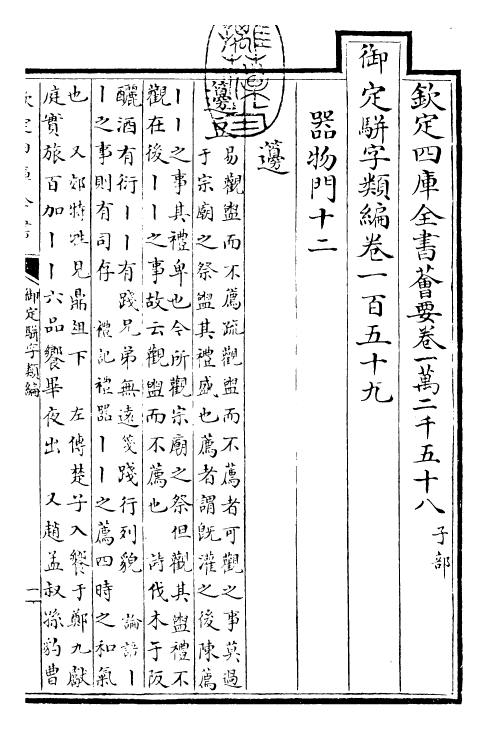 欽定四庫全書薈要卷一萬二千五十八 子部
御定駢字類編卷一百五十九
器物門十二
籩
籩豆
易觀盥而不薦疏觀盥而不薦者可觀之事莫過
于宗廟之祭盥其禮盛也薦者謂既灌之後陳薦
丨丨之事其禮卑也今所觀宗廟之祭但觀其盥禮不
觀在後丨丨之事故云觀盥而不薦也 詩伐木于阪
釃酒有衍丨丨有踐兄弟無遠箋踐行列貌 論語丨
丨之事則有司存 禮記禮器丨丨之薦四時之和氣
也 又郊特牲見鼎俎下 左傳楚子入饗于鄭九獻
庭實旅百加丨丨六品饗畢夜出 又趙孟叔孫豹曹
御定駢字類編
一